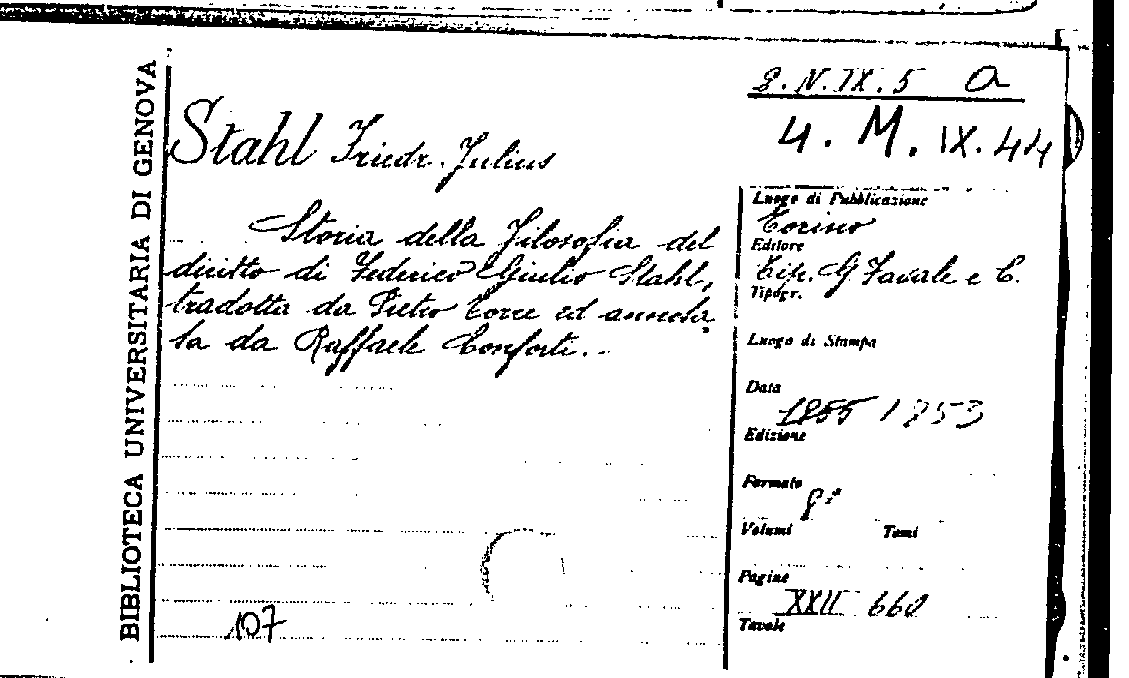 BIBLIOTECA UNIVERSITARIA DI GENOVA
8. N. IX. 5 a
4. M. IX. 44
Stahl Friedr. Julius
Storia della Filosofia del
diritto di Federico Giulio Stahl,
tradotta da Pietro Torre ed annota
ta da Raffaele Conforti.
107
Luogo di Pubblicazione
Torino
Editore
Tip. G Favale e C.
Tipogr.
Luogo di Stampa
Data
1855 1853
Edizione
Formato
8°
Volumi Tomi
Pagine
XXII 660
Tavole